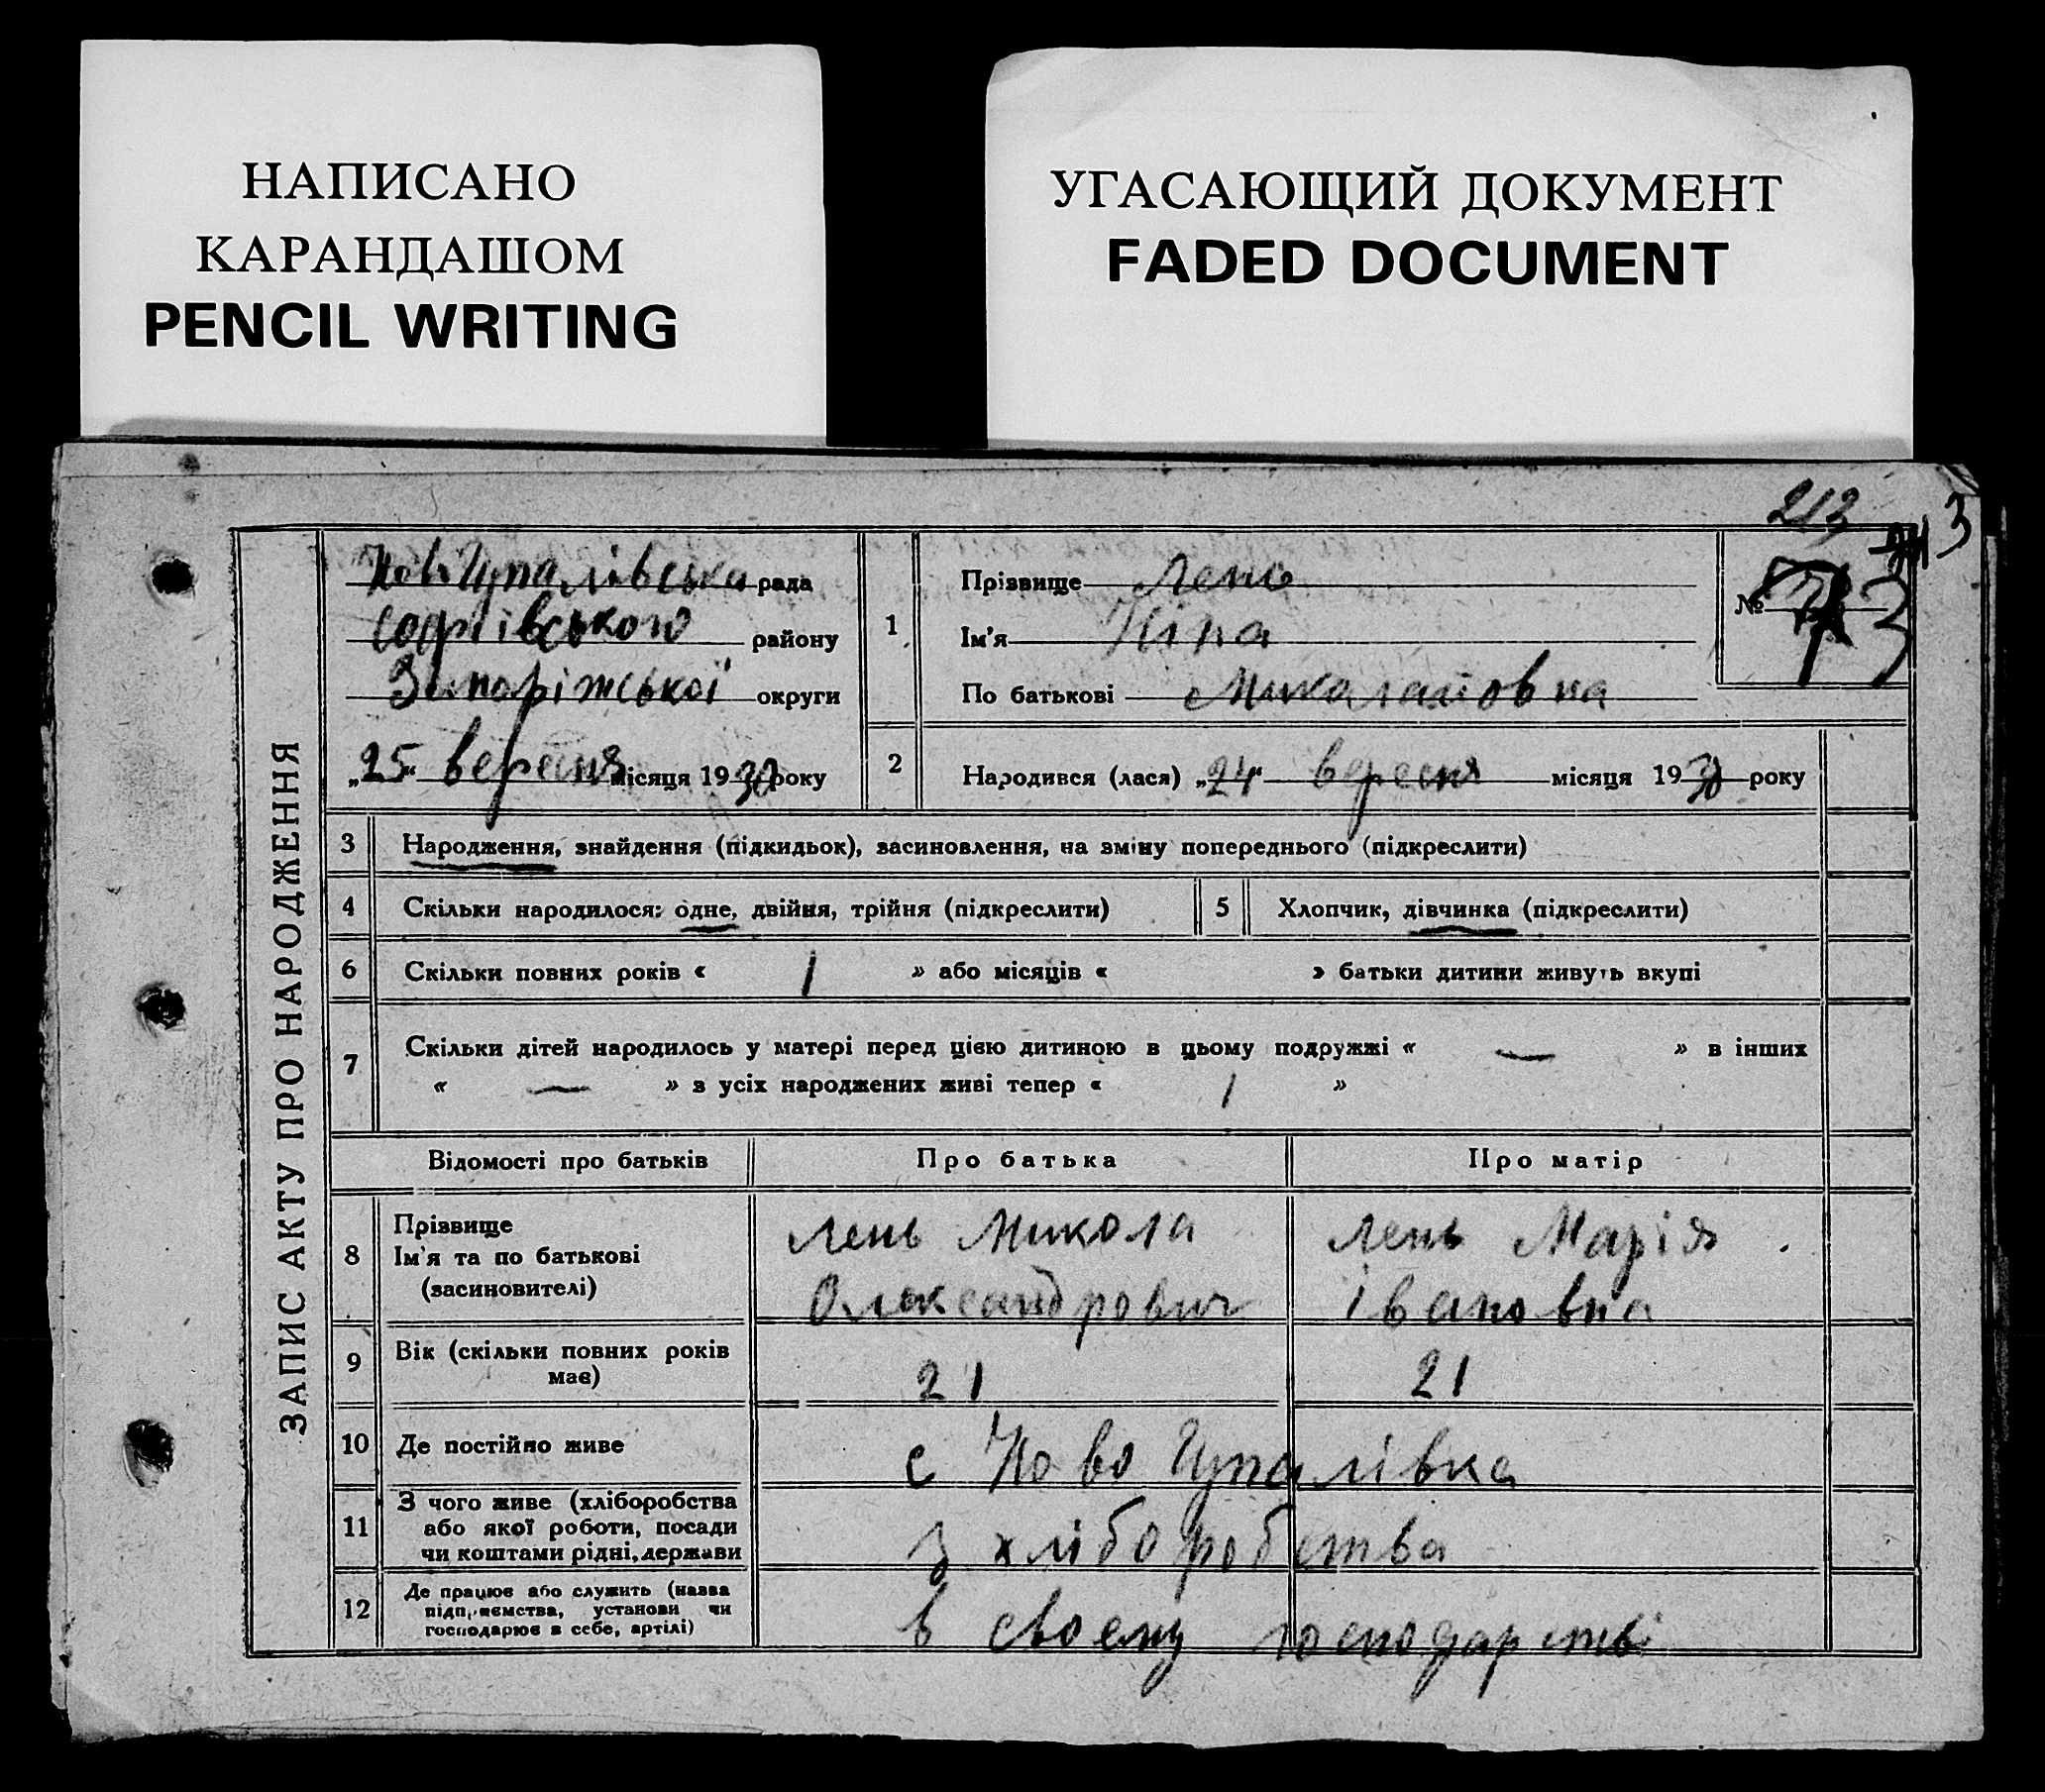 НАПИСАНО
КАРАНДАШОМ
PENCIL WRITING
УГАСАЮЩИЙ ДОКУМЕНТ
FADED DOCUMENT
213
3
ЗАПИС АКТУ ПРО НАРОДЖЕННЯ
Нов Цупалівська рада
Софіівського району
Запоріжської округи
„25" вересня місяця 1930 року
1
Прізвище Лень
Ім'я Ніна
По батькові Миколайовна
№ 73
2
Народився (лася) „24" вересня місяця 1930 року
3 Народження, знайдення (підкидьок), засиновлення, на зміну попереднього (підкреслити)
4 Скільки народилося: одне, двійня, трійня (підкреслити) 5 Хлопчик, дівчинка (підкреслити)
6 Скільки повних років « 1 » або місяців « » батьки дитини живуть вкупі
7 Скільки дітей народилось у матері перед цією дитиною в цьому подружжі « — » в інших
« — » з усіх народжених живі тепер « 1 »
Відомості про батьків Про батька Про матір
8 Прізвище
Ім'я та по батькові
(засиновителі)
Лень Микола
Олександрович
Лень Марія
Івановна
9 Вік (скільки повних років
має)
21 21
10 Де постійно живе с Ново Цупалівка
11 З чого живе (хліборобства
або якої роботи, посади
чи коштами рідні, держави
з хліборобства
12 Де працює або служить (назва
підприємства, установи чи
господарює в себе, артілі)
в своему господарстві